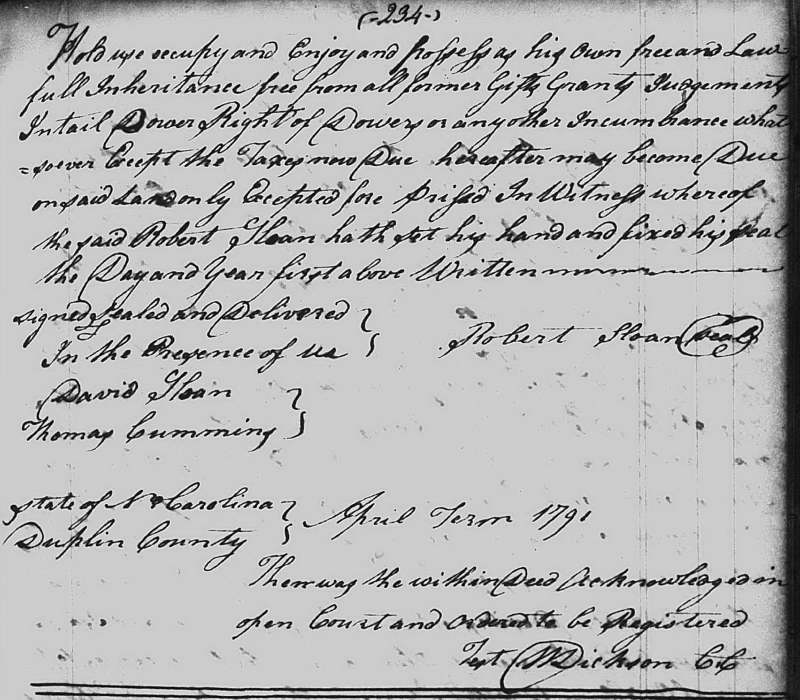 (-234-)
Hold use occupy and Enjoy and possess as his own free and Law=
full Inheritance free from all former Gifts Grants Judgements
Intail Dower Right of Dowers or any other Incumbrance what
=soever Except the Taxes now Due hereafter may become Due
on said Land only Excepted fore prised In Witness whereof
the said Robert Sloan hath set his hand and fixed his seal
the Day and Year first above Written
signed Sealed and Delivered
In the Presence of us
Robert Sloan Seal
David Sloan
Thomas Cumming
State of No Carolina
Duplin County
April Term 1791
Then was the within Deed Acknowledged in
open Court and ordered to be Registered
Test WDickson CC